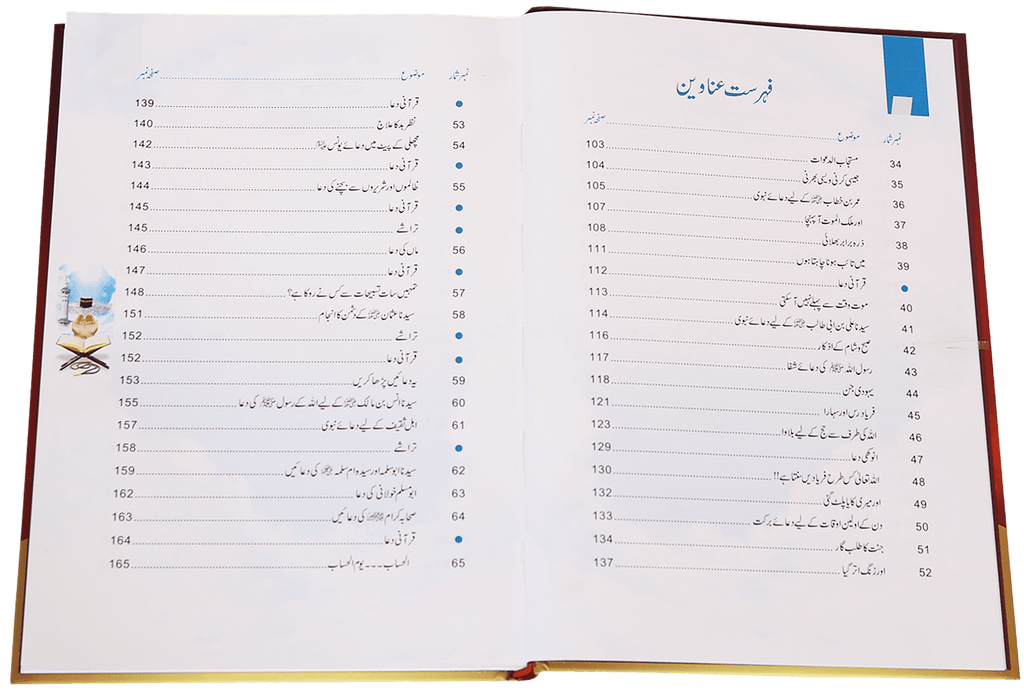 فہرست عناوین
نمبر شمار موضوع صفحہ نمبر
34 مستجاب الدعوات 103
35 جیسی کرنی ویسی بھرنی 104
36 عمر بن خطاب رضی اللہ عنہ کے لیے دعائے نبوی 105
37 اور ملک الموت آ پہنچا 107
38 ذرہ برابر بھلائی 108
39 میں تائب ہونا چاہتا ہوں 111
● قرآنی دعا 112
40 موت وقت سے پہلے نہیں آ سکتی 113
41 سیدنا علی بن ابی طالب رضی اللہ عنہ کے لیے دعائے نبوی 114
42 صبح و شام کے اذکار 116
43 رسول اللہ ﷺ کی دعائے شفا 117
44 یہودی جن 118
45 فریاد رس اور سہارا 121
46 اللہ کی طرف سے حج کے لیے بلاوا 123
47 انوکھی دعا 129
48 اللہ تعالیٰ کس طرح فریادیں سنتا ہے!! 130
49 اور میری کایا پلٹ گئی 132
50 دن کے اولین اوقات کے لیے دعائے برکت 133
51 جنت کا طلب گار 134
52 اور زنگ اتر گیا 137
نمبر شمار موضوع صفحہ نمبر
● قرآنی دعا 139
53 نظر بد کا علاج 140
54 مچھلی کے پیٹ میں دعائے یونس علیہ السلام 142
● قرآنی دعا 143
55 ظالموں اور شریروں سے بچنے کی دعا 144
● قرآنی دعا 145
● تراشے 145
56 ماں کی دعا 146
● قرآنی دعا 147
57 تمہیں سات تسبیحات سے کس نے روکا ہے؟ 148
58 سیدنا عثمان رضی اللہ عنہ کے دشمن کا انجام 151
● تراشے 152
● قرآنی دعا 152
59 یہ دعائیں پڑھا کریں 153
60 سیدنا انس بن مالک رضی اللہ عنہ کے لیے اللہ کے رسول ﷺ کی دعا 155
61 اہل ثقیف کے لیے دعائے نبوی 157
● تراشے 158
62 سیدنا ابوسلمہ اور سیدہ ام سلمہ رضی اللہ عنہما کی دعائیں 159
63 ابو مسلم خولانی کی دعا 162
64 صحابہ کرام رضی اللہ عنہم کی دعائیں 163
● قرآنی دعا 164
65 الحساب۔۔۔یوم الحساب 165